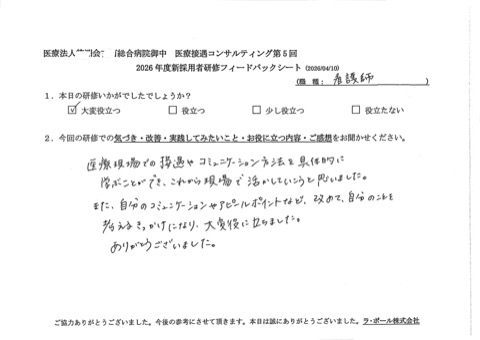 医療法人 総合病院御中　医療接遇コンサルティング第5回
2026年度新採用者研修フィードバックシート（2026/04/10）
（職 種： 看護師 ）
１．本日の研修いかがでしたでしょうか？
☑ 大変役立つ　□ 役立つ　□ 少し役立つ　□ 役立たない
２．今回の研修での気づき・改善・実践してみたいこと・お役に立つ内容・ご感想をお聞かせください。
医療現場での接遇やコミュニケーション方法を具体的に
学ぶことができ、これから現場で活かしていこうと思いました。
また、自分のコミュニケーションやアピールポイントなど、改めて、自分のことを
考えるきっかけになり、大変役に立ちました。
ありがとうございました。
ご協力ありがとうございました。今後の参考にさせて頂きます。本日は誠にありがとうございました。ラ・ポール株式会社